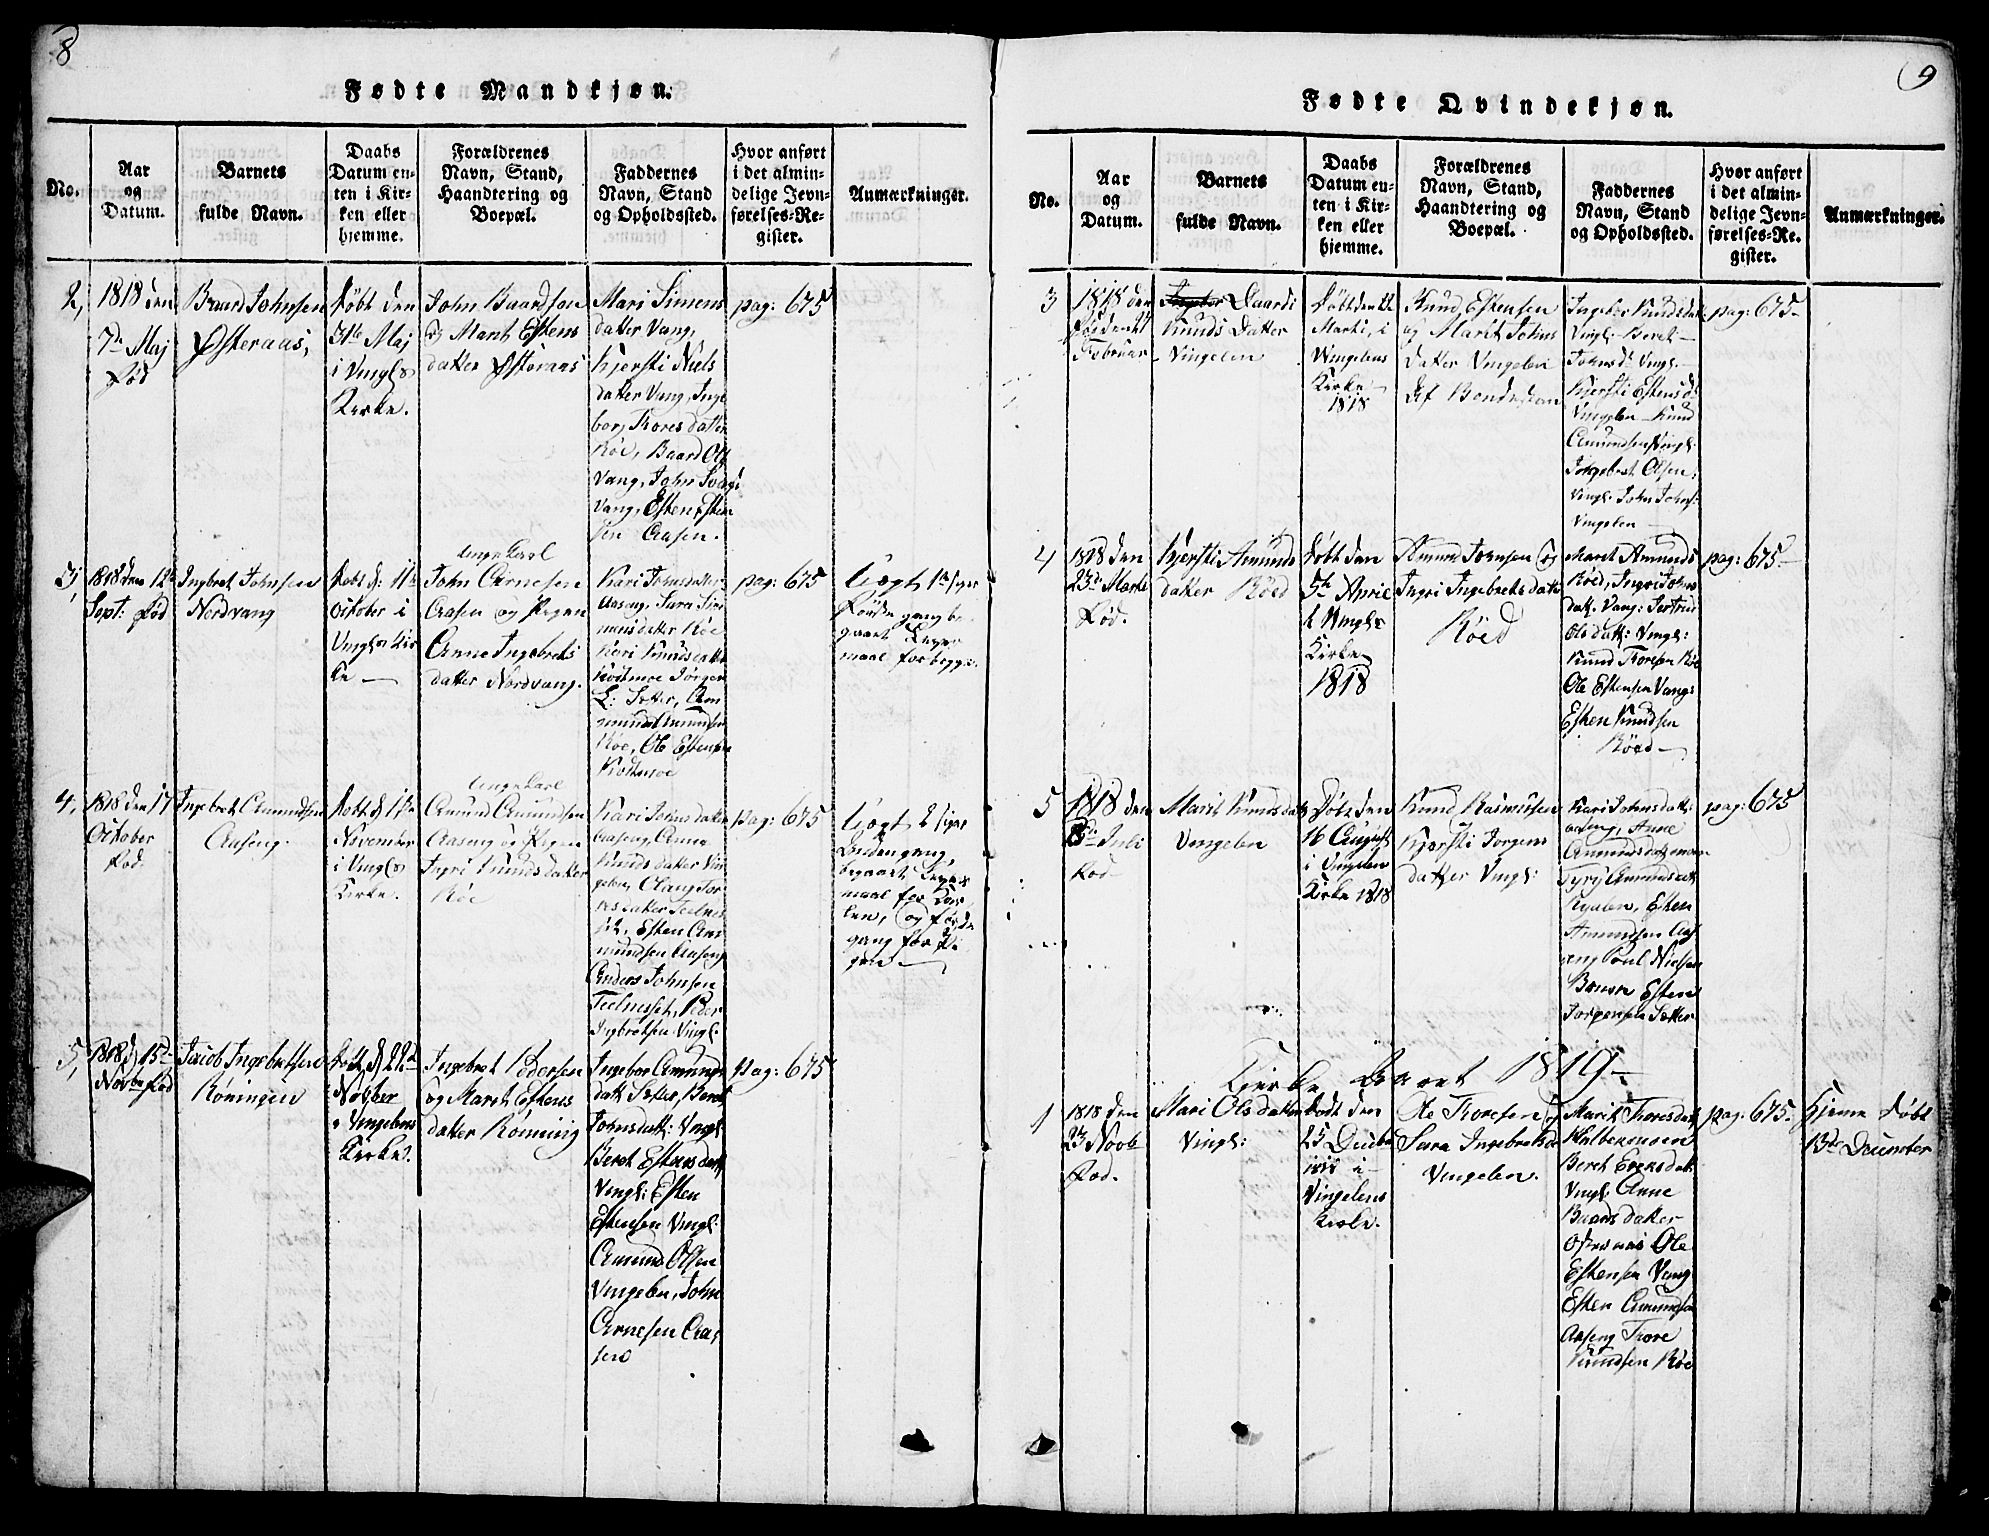 8
Fødte Mandkjøn.
No.
Aar
og
Datum.
Barnets
fulde Navn.
Daabs
Datum en-
ten i Kir-
ken eller
hjemme.
Forældrenes
Navn, Stand,
Haandtering og
Boepæl.
Faddernes
Navn, Stand
og Opholdssted.
Hvor anført
i det almin-
delige Jevn-
førelses-Re-
gister.
Anmærkninger.
2,
1818 den
7de Maj
fød
Baard Johnsen
Østeraas,
døbt den
31te Maj
i Vingls
Kirke.
John Baardsen
og Marit Estens
datter Østeraas
Mari Simens
datter Vang,
Kjersti Niels
datter Vang, Inge
bor, Thores datter
Røe, Baard Ols
Vang, John
Vang, Esten Esten
sen Aasen.
pag: 675
3,
1818 den 12te
Sept: fød
Ingbret Johnsen
Nordvang
døbt d: 11te
October i
Vingls Kir
ke —
unge Karl
John Arnesen
Aasen og Pigen
Anne Ingebrets
datter Nordvang.
Kari Johnsdatter
Aaseng, Sara Si-
mensdatter Røe
Kari Knudsdatter
Kostmoe Jørgen
E: Sæter, Am
mund Amundsen
Røe, Ole Estensen
Kostmoe
pag: 675
begaaet Leger
maal for begge.
4,
1818 den 17
October
fød
Ingebret Amundsen
Aaseng.
døbt d 1ste
November
i Vingls
Kirke.
unge Karl
Amund Amundsen
Aaseng og Pigen
Ingri Knudsdatter
Røe
Kari Johnsdatter
Aaseng, Anne
Knudsdatter Vin
gelen, Olaug Tor
resdatter Telnes
set, Esten Am
mundsen Aaseng
Anders Johnsen
Telnesset, Peder
Ingbretsen Vingl.
pag: 675
begaaet Leger
maal for Kar
len, og første
gang for Pi
gen —
5,
1818 d 15de
Novbr fød
Jacob Ingebretsen
Røningen
døbt d 22de
Novber
i Vingelens
Kirke.
Ingebret Pedersen
og Marit Estens
datter Rønning
Ingebor Amunds
datt Sæter, Beret
Johnsdatt: Vingl.
Beret Estensdatt
Vingl: Esten
Estensen Vingl.
Amund Olsen
Vingelen, John
Arnesen Aa
sen
pag: 675
9
Fødte Qvindekjøn.
No.
Aar
og
Datum.
Barnets
fulde Navn.
Daabs
Datum en-
ten i Kir-
ken eller
hjemme.
Forældrenes
Navn, Stand,
Haandtering og
Boepæl.
Faddernes
Navn, Stand
og Opholdssted.
Hvor anført
i det almin-
delige Jevn-
førelses-Re-
gister.
Anmærkninger.
3
1818 den
Februar
Ingebor Baardi
Knuds Datter
Vingelen
døbt den 22
Marti, i
Vingelens
Kirke —
1818
Knud Estensen
og Marit Johns
Datter Vingelen
Ingebor Knudsdat
Vingl. Beret
Johnsd. Vingl.
Kjersti Estensd
Vingelen — Knud
Amundsen Vingl.
Ingebret Olsen,
Vingl. John Johns:
Vingelen
pag: 675-
4
1818 den
23de Marti
fød.
Kjersti Amunds
datter Røed
døbt den
5te April
i Vingls
Kirke
1818
Amund Johnsen og
Ingri Ingebretsdatt
Røed
Marit Amunds
Røed, Ingri Johns
datt. Vang: Jertrud
Olsdatt: Vingl:
Knud Thoresen Røe
Ole Estensen Vang:
Esten Knudsen
Røed —
pag: 675-
5
1818 den
Juli
fød
Marit Knudsdatt
Vingelen
Døbt den
16 August
i Vingelen
Kirke 1818
Knud Rasmusen
Kjersti Jørgens
datter Vingl:
Kari Johnsdatt:
Aaseng, Anne
Amundsdatt
Tyri Amundsdatt
Esten
Amundsen Aas
eng Poul Nielsen
Esten
Jørgensen Sæter
pag: 675
Kirke Aaret 1819 —
1
1818 den
23 Novb
fød.
Mari Olsdatter
Vingl:
døbt den
25 Decbr
1818 i
Vingelens
Kirke.
Ole Thoresen og
Sara Ingebretsd
Vingelen.
Marit Thoresdatt
Beret Erensdatt
Vingl. Anne
Baardsdatter
Østeraas Ole
Estensen Vang
Esten Amundsen
Aaseng Thore
Knudsen Røe
pag: 675-
Hjemme døbt
13de December